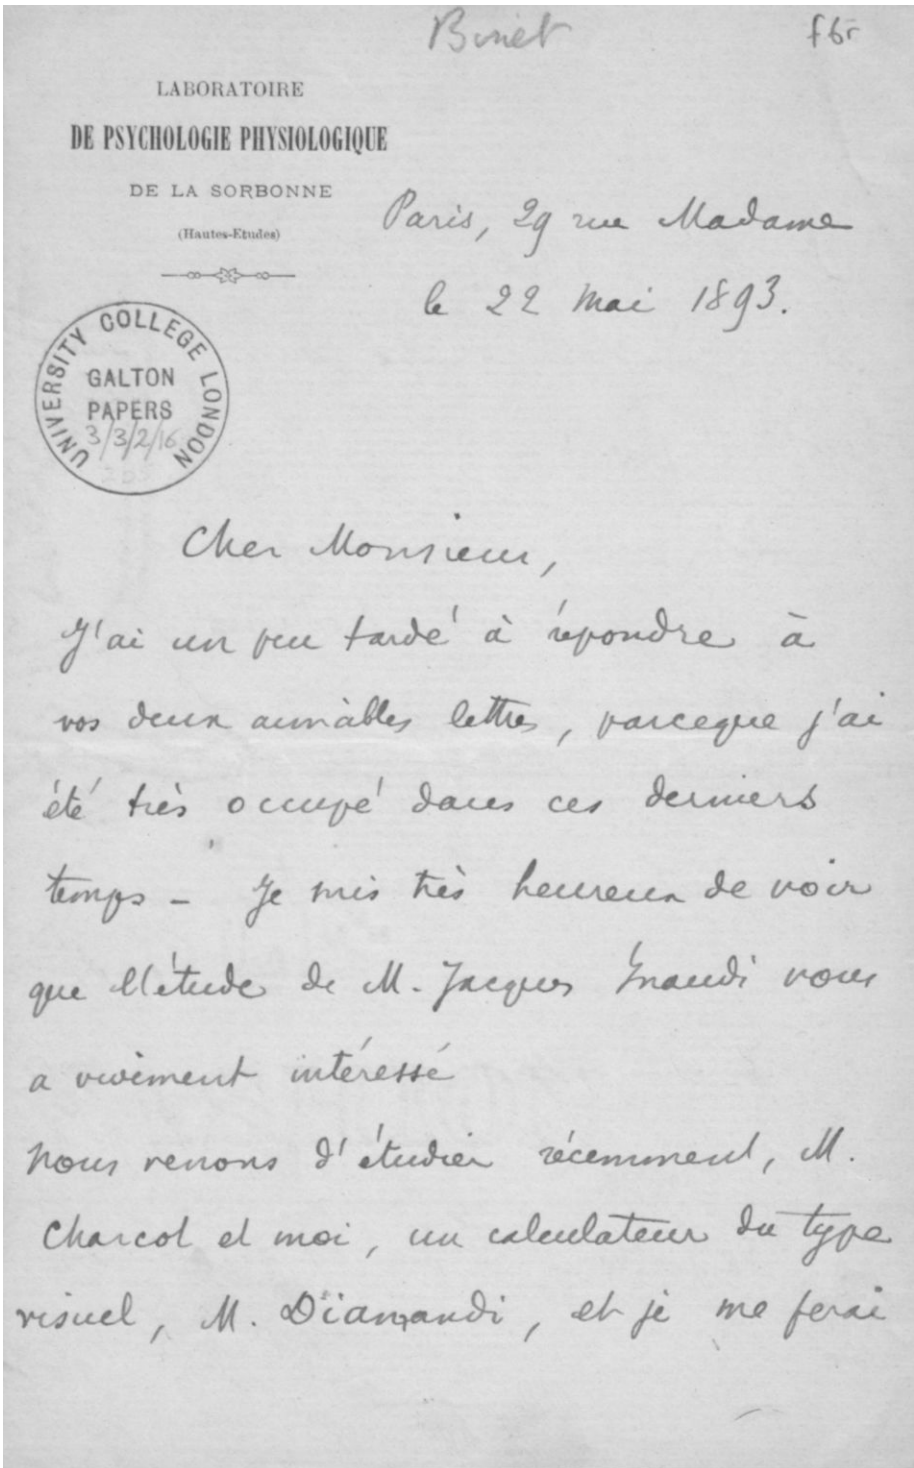 Binet
f6r
LABORATOIRE
DE PSYCHOLOGIE PHYSIOLOGIQUE
DE LA SORBONNE
(Hautes-Etudes)
Paris, 29 rue Madame
le 22 mai 1893.
UNIVERSITY COLLEGE LONDON
GALTON
PAPERS
3/3/2/16
Cher Monsieur,
J'ai un peu tardé à répondre à
vos deux aimables lettres, parceque j'ai
été très occupé dans ces derniers
temps - Je suis très heureux de voir
que l'étude de M. Jacques Inaudi vous
a vivement intéressé
Nous venons d'étudier récemment, M.
Charcot et moi, un calculateur du type
visuel, M. Diamandi, et je me ferai